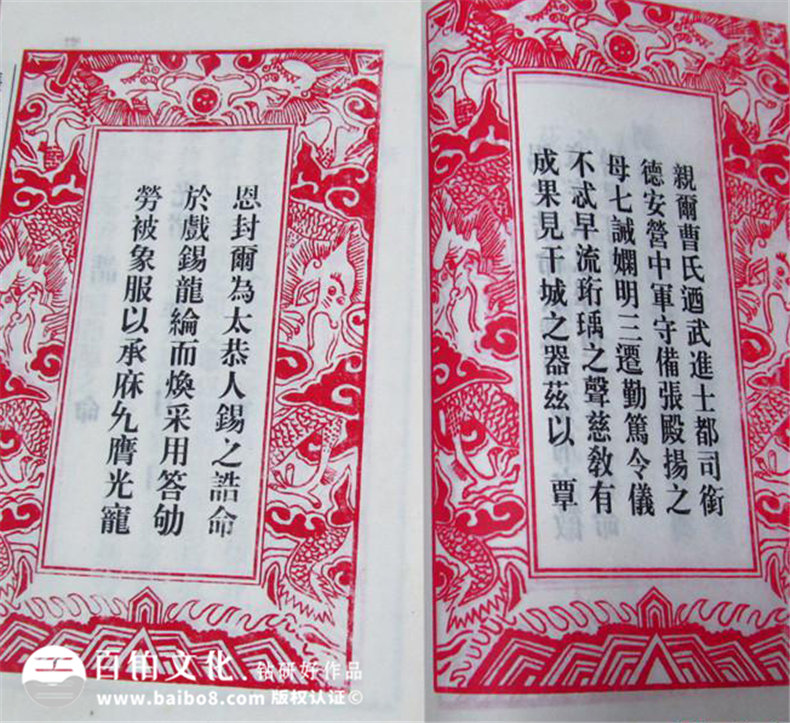 親爾曹氏迺武進士都司銜
德安營中軍守備張殿揚之
母七誡嫻明三遷勤篤令儀
不忒早流珩瑀之聲慈教有
成果見干城之器茲以 覃
恩封爾為太恭人錫之誥命
於戲錫龍綸而煥采用答劬
勞被象服以承庥允膺光寵
百铂文化 钻研好作品
www.baibo8.com 版权认证©